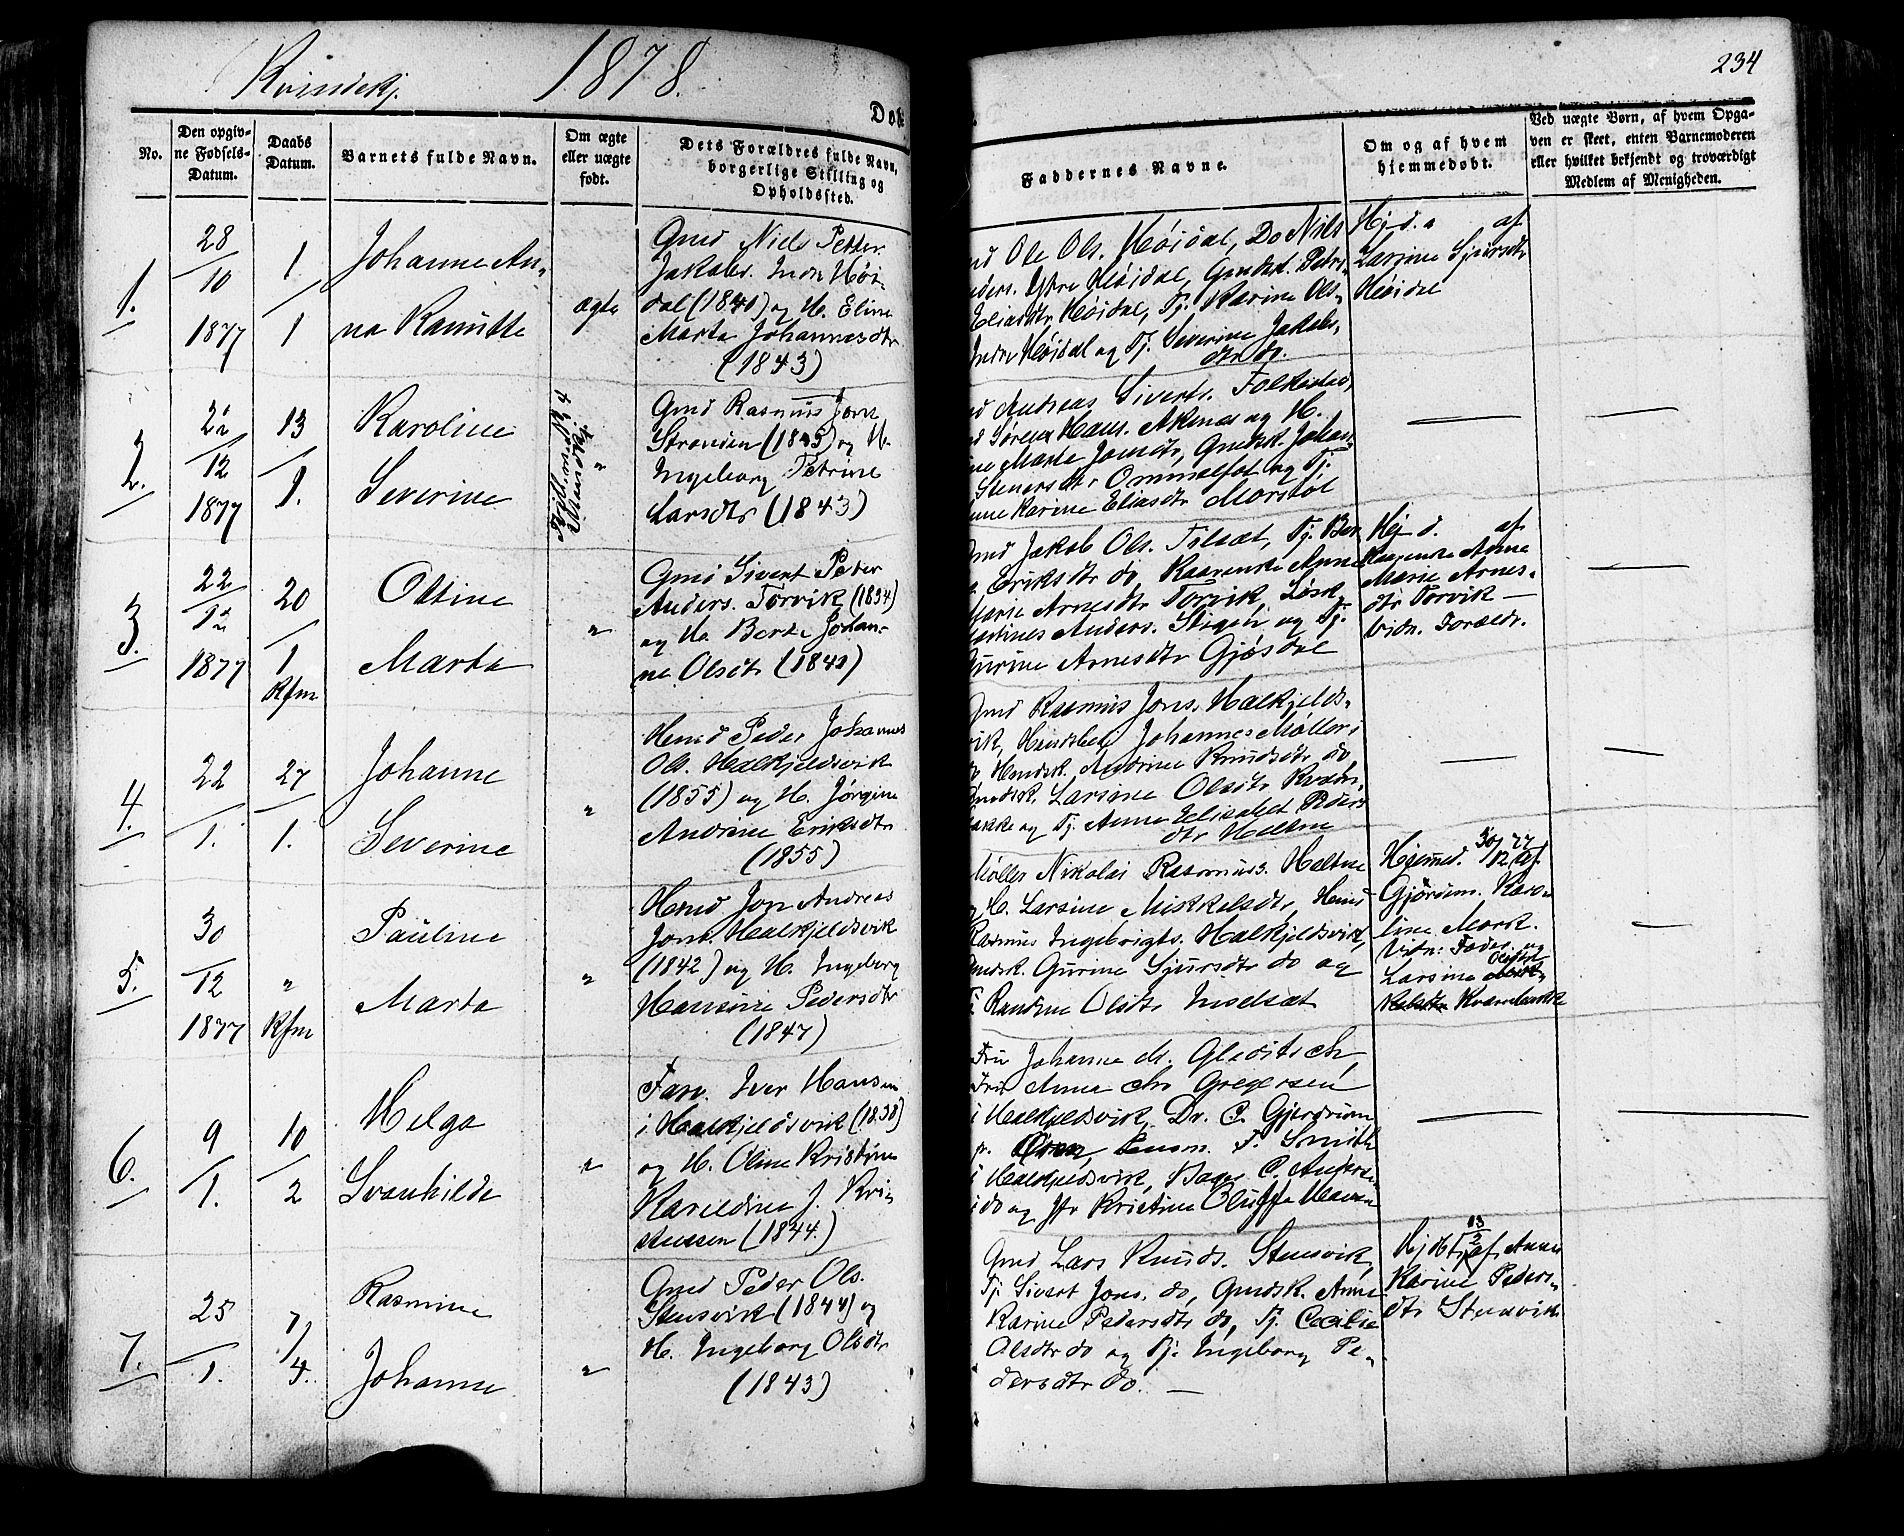 Kvindekj. 1878.
234
Døb
No.
Den opgiv-
ne Fødsels-
Datum.
Daabs
Datum.
Barnets fulde Navn.
Om ægte
eller uægte
født.
Dets Forældres fulde Navn,
borgerlige Stilling og
Opholdssted.
Faddernes Navne.
Om og af hvem
hjemmedøbt.
Ved uægte Børn, af hvem Opga-
ven er skeet, enten Barnemoderen
eller hvilket bekjendt og troværdigt
Medlem af Menigheden.
1.
28
10
1877
1
1
Johanne An-
na Knudtte
ægte
Gmd Niels Petter
Jakobs. Indre Høi-
dal (1840) og H. Eline
Marta Johannesdtr
(1843)
Ole Ols. Høidal, Do Nils
Anders. Ytre Høidal, Gmdsk. Petri-
Eliasdtr Høidal, Tj. Karine Ols-
Indre Høidal og Tj. Severine Jakobs-
dtr do.
Hj. d. af
Larine Sjursdtr
Høidal
2.
12
1877
13
1.
Karoline
Severine
"
Gmd Rasmus Jons.
Stranden (1845) og H.
Ingeborg Petrine
Larsdtr (1843)
Andreas Siverts. Folkestad,
Søren Hans. Aknes og H.
Marte Jonsdtr, Gmdsk. Johan-
Steнersdtr Ommelfot og Tj.
Karine Eliasdtr Morstøl
3.
22
12
1877
20
1
Kfm
Oltine
Marta
"
Gmd Sivert Peder
Anders. Torvik (1834)
og H. Berte Johan-
ne Olsdtr (1840)
Gmd Jakob Ols. Folsæt, Tj. Ber
Eriksdtr do, Kaarenske Anne
Marie Arnesdtr Torvik, Løsk.
Martines Anders. Stigen og Tj.
Gurine Arnesdtr Gjøsdal
Hj. d. af
Kaarenske Anne
Marie Arnes-
dtr Torvik —
Vidn. Foraldr.
4.
22
1.
27
1.
Johanne
Severine
"
Hmd Peder Johannes
Ols. Halkjeldsvik
(1855) og H. Jørgine
Andrine Eriksdtr
(1855)
Gmd Rasmus Jons. Halkjelds-
vik, Johannes Møller i
do, Hmdsk. Andrine Knudsdtr do
Gmdsk. Larsine Olsdtr Kvarn-
bakke og Tj. Anne Elisabet Peders
dtr Haltne
5.
30
12
1877
"
Kfm
Pauline
Marta
"
Hmd Jon Andreas
Jons. Halkjeldsvik
(1842) og H. Ingeborg
Hansine Pedersdtr
(1847)
Møller Nikolai Rasmuss. Haltne
og H. Larsine Mikkelsdtr, Hmd
Rasmus Ingebrigts. Halkjeldsvik,
Gmdsk. Gurine Sjursdtr do og
Tj. Randine Olsdtr Indsæt
Hjemmed. 30/12 77 af
Gjordem. Karo-
line Mork.
Vidn: Fader og
Larsine Olsdtr
Kvarnbakke
6.
9
1.
10
2
Helga
Svanhilde
"
Farv. Iver Hansen
i Halkjeldsvik (1838)
og H. Oline Kristine
Karoldine J. Kri-
stensen (1844.)
Fru Johanne M. Gleditsch,
Fru Anna Chr Gregersen
i Halkjeldsvik, Dr. C. Gjerdrum
F. Smith
i Halkjeldsvik, Bager C. Anders.
i do og Jfr Kristine Oluffa Hansen
7.
25
1.
7
4.
Rasmine
Johanne
"
Gmd Peder Ols.
Stensvik (1844) og
H. Ingeborg Olsdtr
(1843)
Gmd Lars Knuds. Stensvik,
Tj. Sivert Jons. do, Gmdsk. Anne
Karine Pedersdtr do, Tj. Cecilie
Olsdtr do og Tj. Ingeborg Pe-
dersdtr do. —
Hj dbt 13/2 af Anne
Karine Peders-
dtr Stensvik